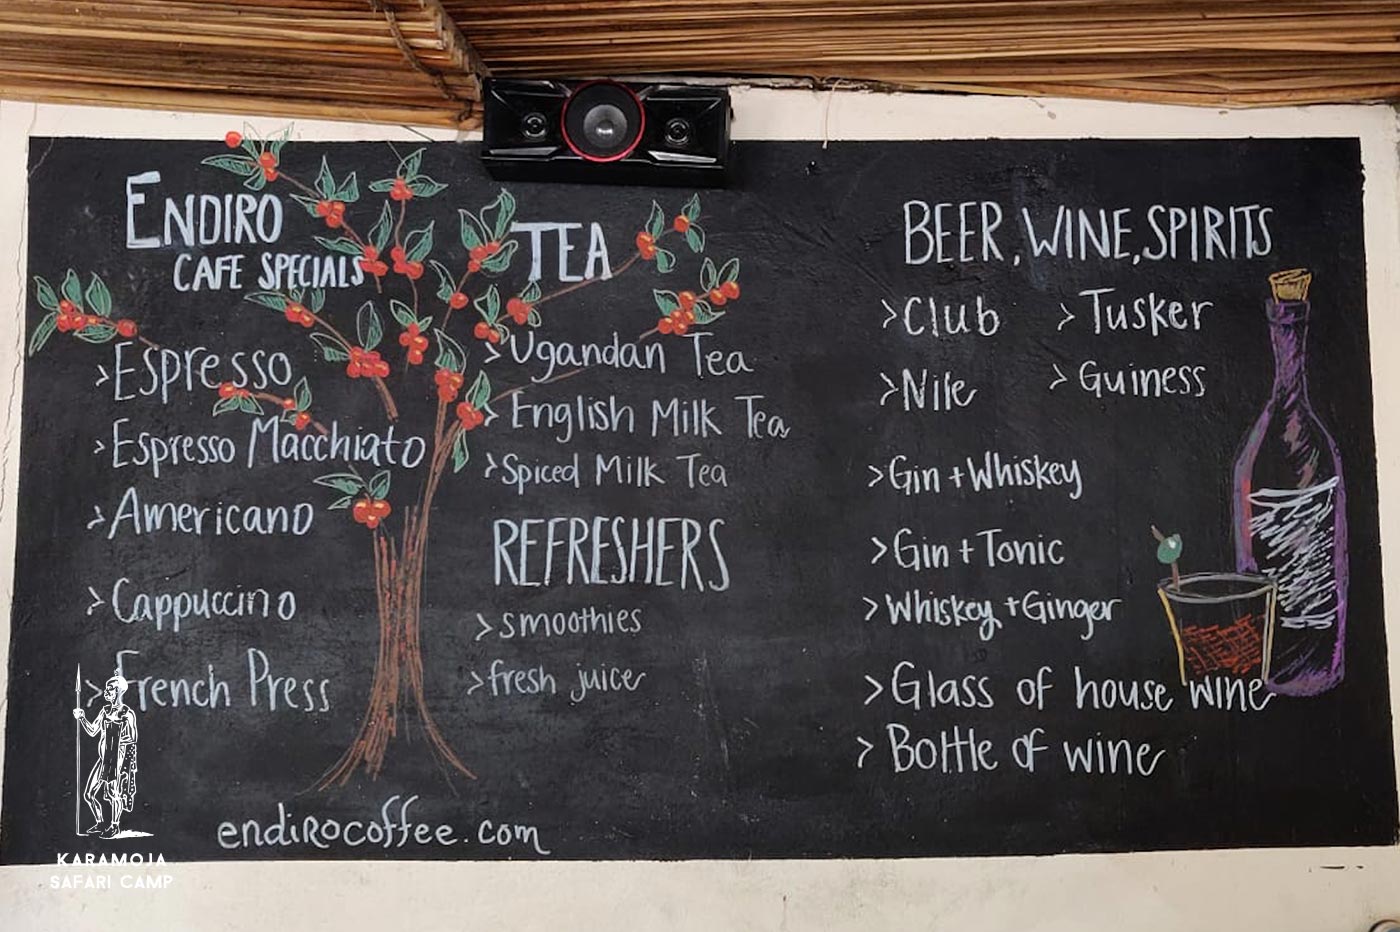 ENDIRO
CAFE SPECIALS
> Espresso
> Espresso Macchiato
> Americano
> Cappuccino
> French Press
endirocoffee.com
TEA
> Ugandan Tea
> English Milk Tea
> Spiced Milk Tea
REFRESHERS
> smoothies
> fresh juice
BEER, WINE, SPIRITS
> Club > Tusker
> Nile > Guiness
> Gin + Whiskey
> Gin + Tonic
> Whiskey + Ginger
> Glass of house wine
> Bottle of wine
KARAMOJA
SAFARI CAMP